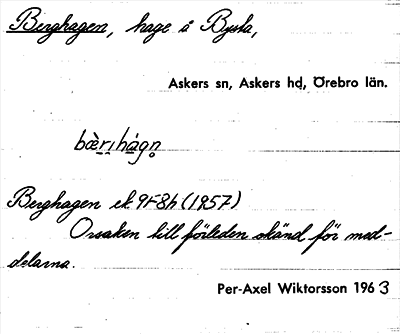 Berghagen, hage å Bysta,
Askers sn, Askers hd, Örebro län.
bæ̀rıhágn̥
Berghagen ek. 9f8h (1957)
Orsaken till förleden okänd för med-
delarna.
Per-Axel Wiktorsson 1963